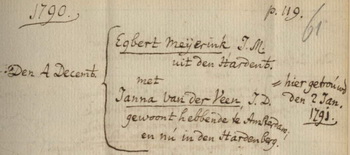 1790. p. 119. 61
Egbert Meijerink J.M.
uit den Hardenb.
Den 4 Decemb. met
Janna van der Veen, J.D.
gewoont hebbende te Amsterdam,
en nu in den Hardenberg.
= hier getrouwd
den 2 Jan.
1791.